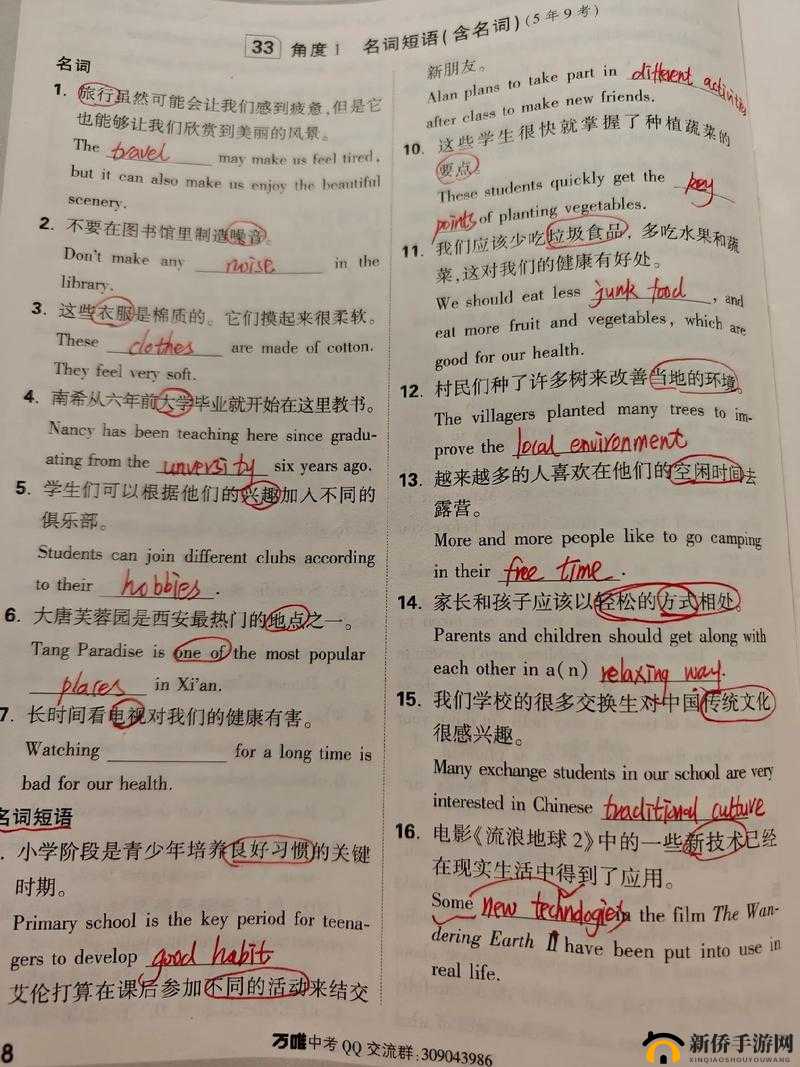 33 角度1 名词短语(含名词)(5年9考)
名词
1. 旅行虽然可能会让我们感到疲惫,但是它
也能够让我们欣赏到美丽的风景。
The travel may make us feel tired,
but it can also make us enjoy the beautiful
scenery.
2. 不要在图书馆里制造噪音。
Don't make any noise in the
library.
3. 这些衣服是棉质的。它们摸起来很柔软。
These clothes are made of cotton.
They feel very soft.
4. 南希从六年前大学毕业就开始在这里教书。
Nancy has been teaching here since gradu-
ating from the unversity six years ago.
5. 学生们可以根据他们的兴趣加入不同的
俱乐部。
Students can join different clubs according
to their hobbies.
6. 大唐芙蓉园是西安最热门的地点之一。
Tang Paradise is one of the most popular
places in Xi'an.
7. 长时间看电视对我们的健康有害。
Watching ____ for a long time is
bad for our health.
名词短语
. 小学阶段是青少年培养良好习惯的关键
时期。
Primary school is the key period for teena-
gers to develop good habit
艾伦打算在课后参加不同的活动来结交
新朋友。
Alan plans to take part in different activities
after class to make new friends.
10. 这些学生很快就掌握了种植蔬菜的
要点。
These students quickly get the key
points of planting vegetables.
11. 我们应该少吃垃圾食品,多吃水果和蔬
菜,这对我们的健康有好处。
We should eat less junk food, and
eat more fruit and vegetables, which are
good for our health.
12. 村民们种了许多树来改善当地的环境。
The villagers planted many trees to im-
prove the local environment
13. 越来越多的人喜欢在他们的空闲时间去
露营。
More and more people like to go camping
in their free time.
14. 家长和孩子应该以轻松的方式相处。
Parents and children should get along with
each other in a(n) relaxing way.
15. 我们学校的很多交换生对中国传统文化
很感兴趣。
Many exchange students in our school are very
interested in Chinese traditional culture
16. 电影《流浪地球2》中的一些新技术已经
在现实生活中得到了应用。
Some new technologies in the film The Wan-
dering Earth II have been put into use in
real life.
8
万唯中考 QQ交流群:309043986
新侨手游网
XINQIAOSHOUYOUWANG